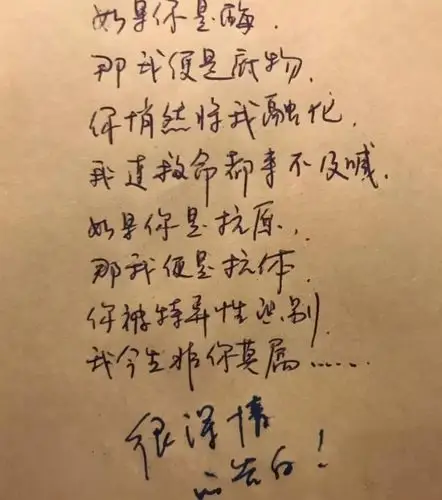 如果你是酶.
那我便是底物.
你悄然将我融化.
我连救命都来不及喊.
如果你是抗原,.
那我便是抗体.
你被特异性识别.
我今生非你莫属……
很深情
的告白!